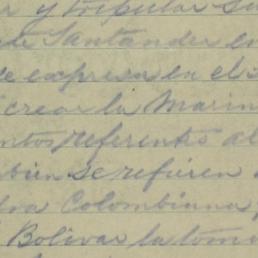 r y tripular su
de Santander en
se expresa en el s
crear la Marin
ntos referente al
bien se refieren
dra Colombiana
Bolivar la toma